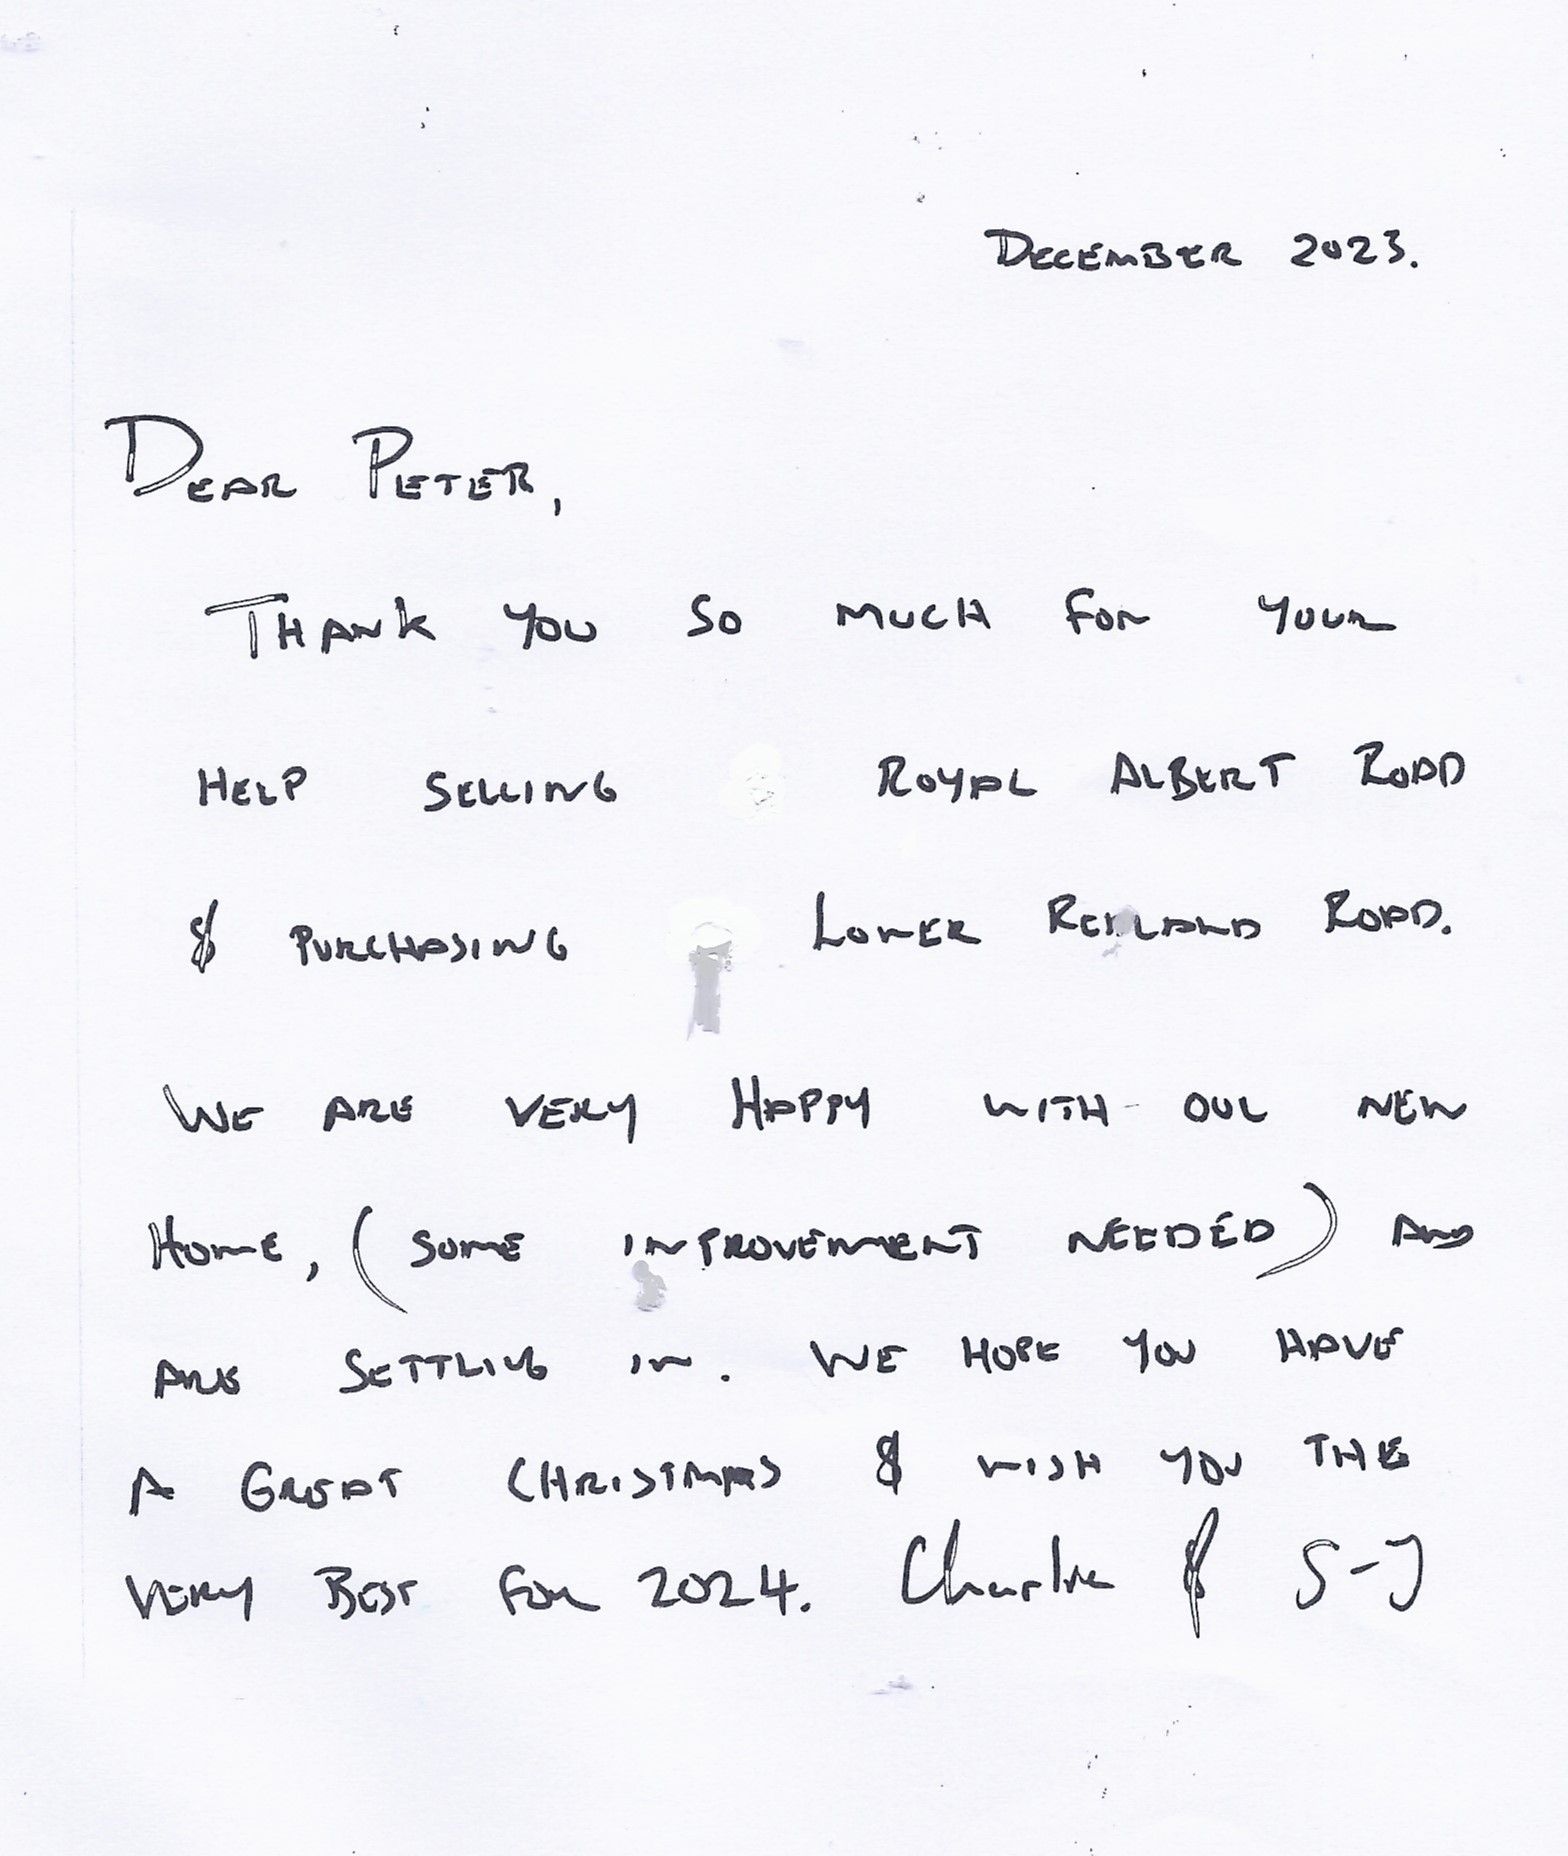 DECEMBER 2023.
DEAR PETER,
THANK YOU SO MUCH FOR YOUR
HELP SELLING ROYAL ALBERT ROAD
& PURCHASING LOWER REDLAND ROAD.
WE ARE VERY HAPPY WITH OUR NEW
HOME, (SOME IMPROVEMENT NEEDED) AND
ARE SETTLING IN. WE HOPE YOU HAVE
A GREAT CHRISTMAS & WISH YOU THE
VERY BEST FOR 2024. Charlie & S-J